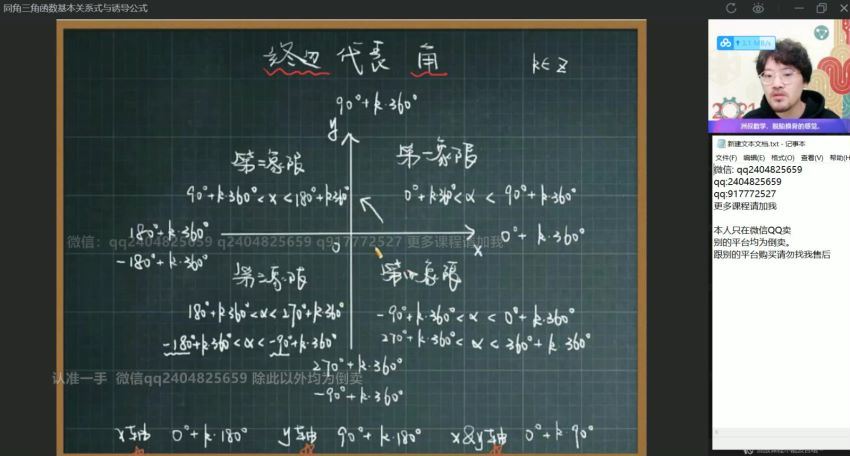 同角三角函数基本关系式与诱导公式
终边 代表 角
k∈Z
90°+k·360°
y
第二象限
第一象限
90°+k·360°<α<180°+k·360°
0°+k·360°<α<90°+k·360°
180°+k·360°
-180°+k·360°
0
x
0°+k·360°
微信：qq2404825659 q2404825659 q917772527 更多课程请加我
第三象限
第四象限
180°+k·360°<α<270°+k·360°
-180°+k·360°<α<-90°+k·360°
-90°+k·360°<α<0°+k·360°
270°+k·360°<α<360°+k·360°
270°+k·360°
-90°+k·360°
认准一手 微信qq2404825659 除此以外均为倒卖
x轴 0°+k·180°
y轴 90°+k·180°
x&y轴 0°+k·90°
洲叔数学，脱胎换骨的感觉。
新建文本文档.txt - 记事本
文件(F) 编辑(E) 格式(O) 查看(V) 帮助(H)
微信: qq2404825659
qq:2404825659
qq:917772527
更多课程请加我
本人只在微信QQ卖
别的平台均为倒卖。
跟别的平台购买请勿找我售后